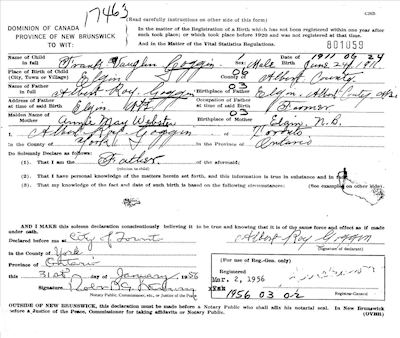 17463
(Read carefully instructions on other side of this form)
DOMINION OF CANADA
PROVINCE OF NEW BRUNSWICK
TO WIT:
In the matter of the Registration of a Birth which has not been registered within one year after
such took place; or which took place before 1920 and was not registered at that time.
And in the Matter of the Vital Statistics Regulations.
801059
1911 06 24
Name of Child in full Frank Vaughn Goggin Sex Male Date of Birth June 24 1911
Place of Birth of Child (City, Town or Village) Elgin County 06 Albert County
Name of Father Albert Roy Goggin Birthplace of Father 03 Elgin, Albert County N.B.
Address of Father at time of Birth Elgin N.B. Occupation of Father at time of Birth Farmer
Maiden Name of Mother Annie May Webster Birthplace of Mother 03 Elgin N.B.
I, Albert Roy Goggin of Toronto
in the County of York in the Province of Ontario
Do Solemnly Declare as follows:
(1). That I am the Father of the aforesaid;
(relation to child)
(2). That I have personal knowledge of the matters herein set forth, and this information is true in substance and in fact.
(3). That my knowledge of the fact and date of such birth is based on the following circumstances: (See examples on other side).
AND I MAKE this solemn declaration conscientiously believing it to be true and knowing that it is of the same force and effect as if made
under oath.
Declared before me at City of Toronto
Albert Roy Goggin
(Signature of declarant)
in the County of York
Province of Ontario
this 31st day of January 1956
Signature
Notary Public, Commissioner, etc., or Justice of the Peace
(For use of Reg.-Gen. only)
Registered
Mar. 2, 1956
1956 03 02
Registrar-General
OUTSIDE OF NEW BRUNSWICK, this declaration must be made before a Notary Public who shall affix his notarial seal. In New Brunswick
before a Justice of the Peace, Commissioner for taking affidavits or Notary Public. (OVER)